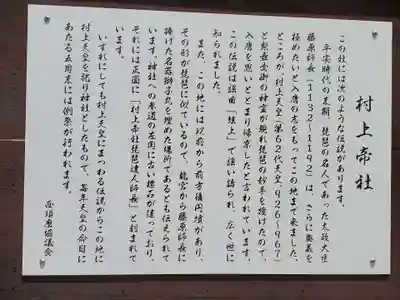 村上帝社
この社には次のような伝説があります。
平安時代の末期、琵琶の名人であった太政大臣
藤原師長(1132~1192)は、さらに奥義を
極めたいと入唐の志をもってこの地まで来ました。
ところが、村上天皇(第62代天皇926~967)
と梨壺女御の神霊が現れ琵琶の妙手を授けたので、
入唐を思いとどまり帰京したと言われています。
この伝説は謡曲「絃上」で謡い語られ、広く世に
知られました。
また、この地には以前から前方後円墳があり、
その形が琵琶に似ているので、龍宮から藤原師長に
捧げた名器獅子丸を埋めた場所であるとも伝えられて
います。神社への参道の左側に古い標石が遺っており、
それには正面に「村上帝社琵琶達人師長」と刻まれて
います。
いずれにしても村上天皇にまつわる伝説からこの地に
村上天皇を祀り神社としたもので、毎年天皇の命日に
あたる五月末には例祭が行われます。
西須磨協議会